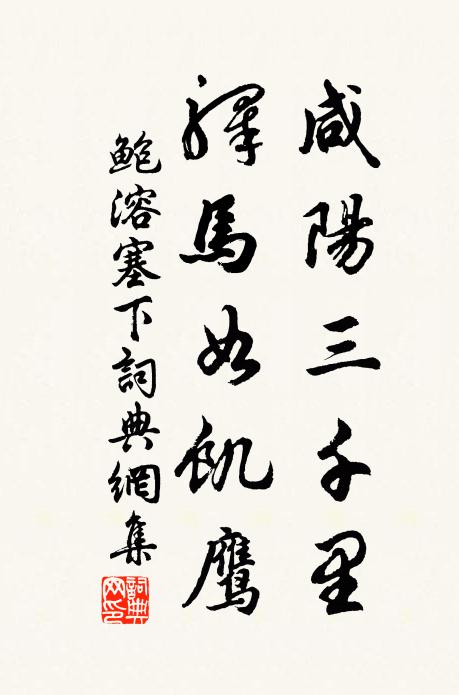 咸陽三千里
驛馬如飢鷹
鮑溶塞下詞典網集
詞典网印